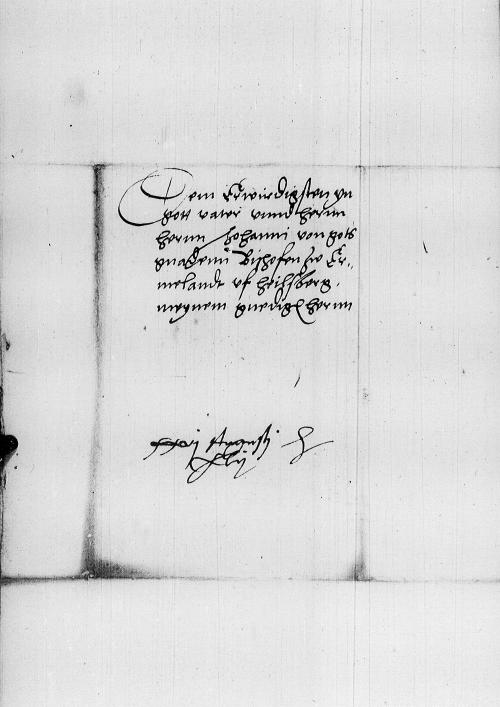 Dem Erwirdigsten yn
gott vater vnnd hernn
hernn Johanni von gots
gnadenn Bischofen zw Er-
melandt vf heilsberg.
meynem gnedig hernn
xxvij Augusti
xlij